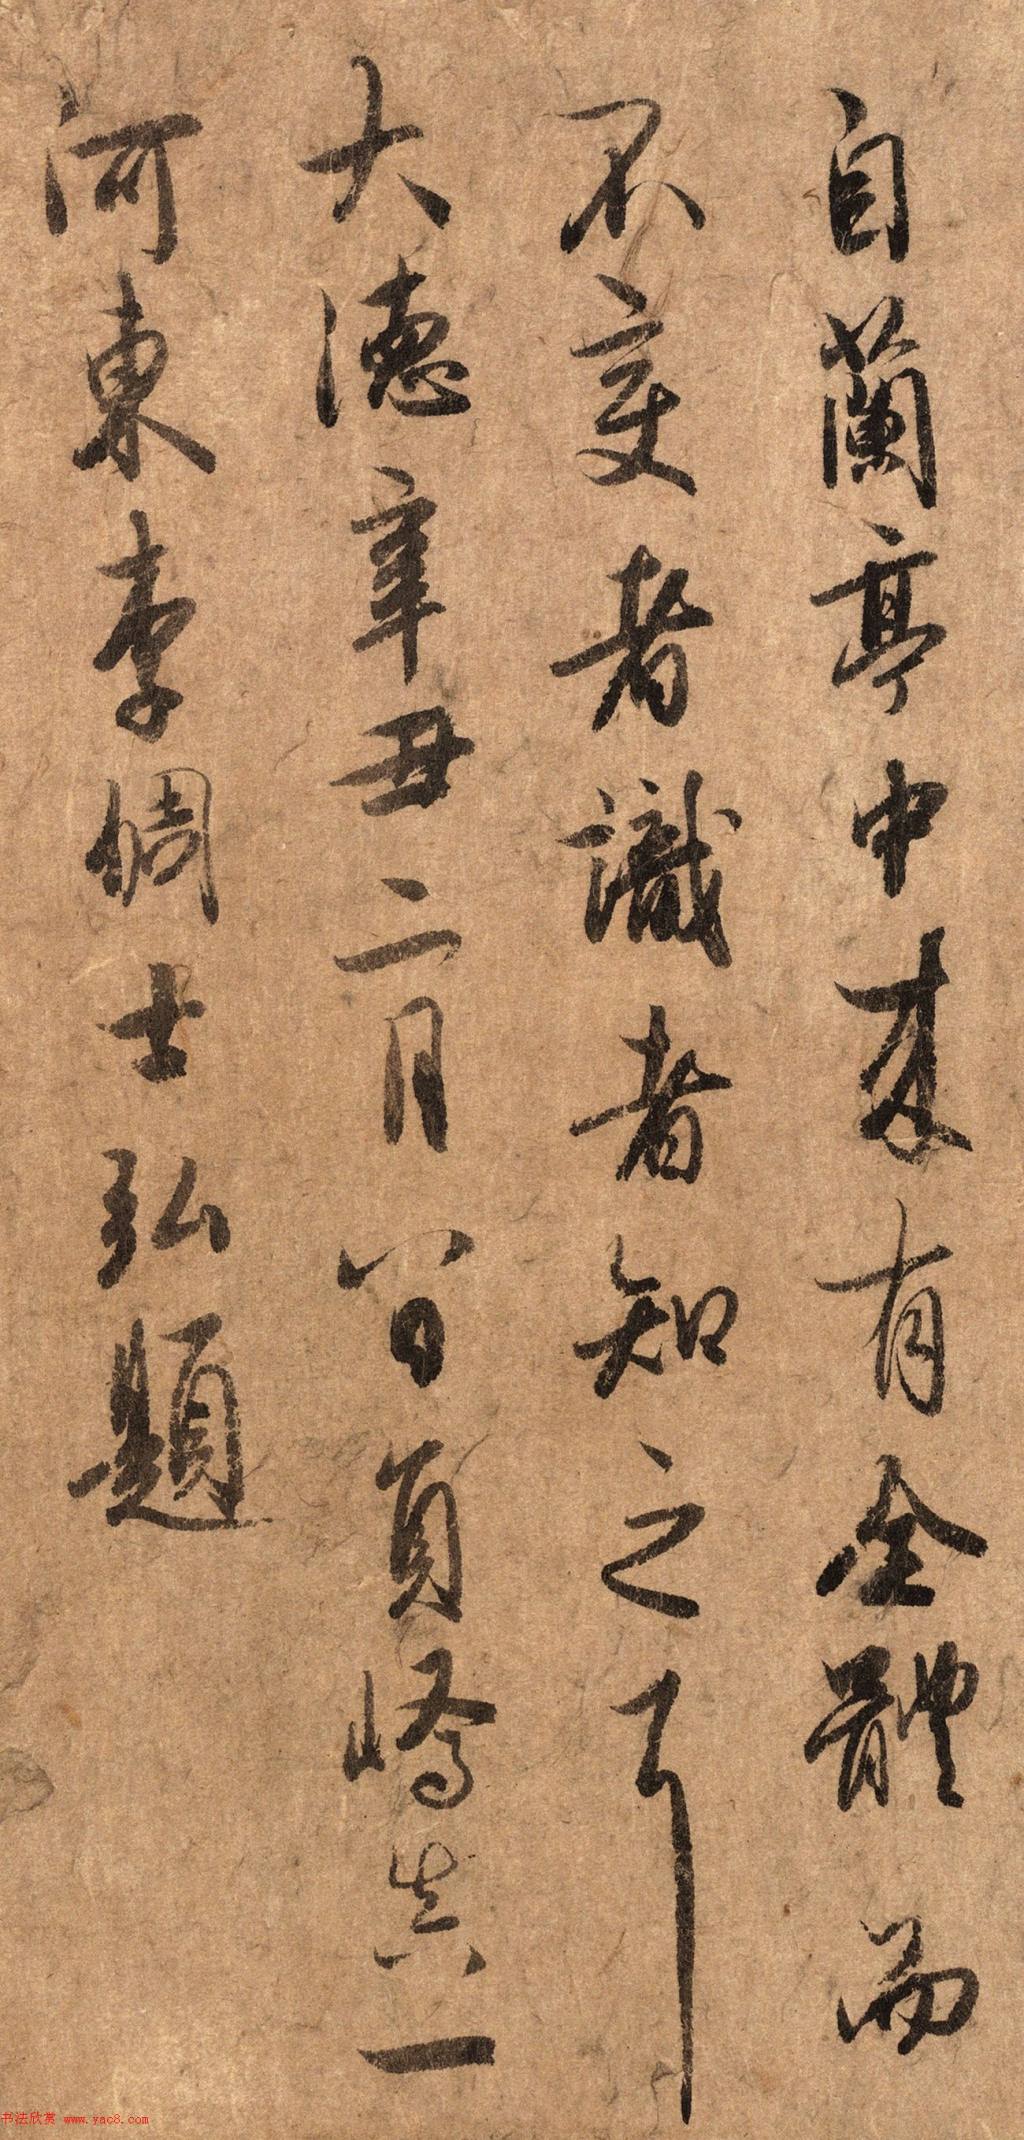 自蘭亭中来有全體而
不变者識者知之耳
大德辛丑二月八日員嶠真一
河東李倜士弘題
书法欣赏 www.yac8.com